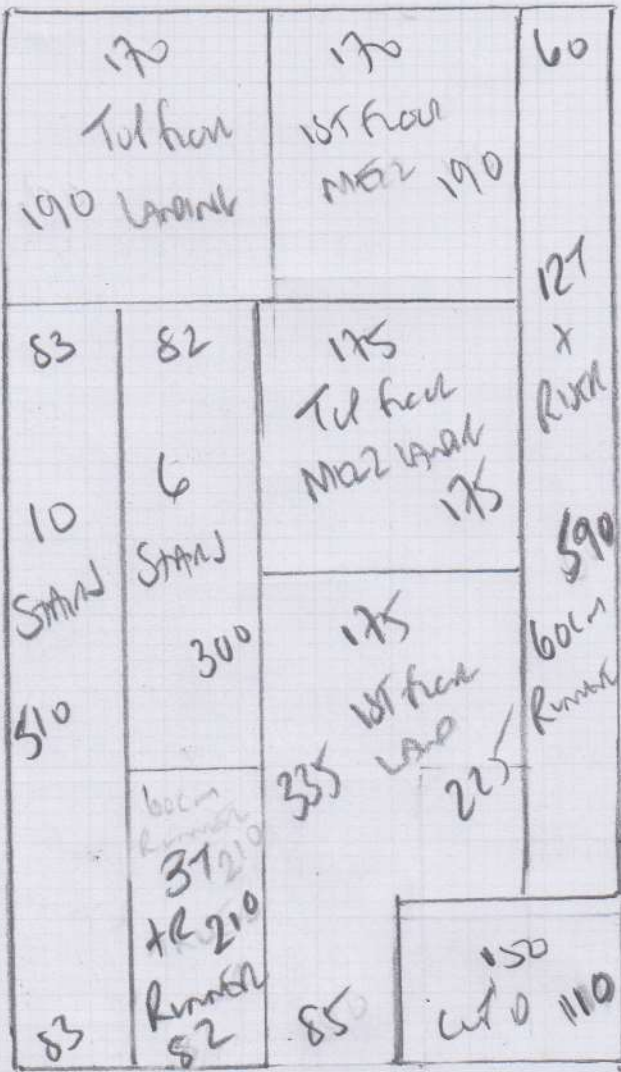 170
Top floor
190 LANDING
170
1ST FLOOR
MEZZ 190
60
12T
X
RISER
590
60cm
RUNNER
83
10
STAIRS
510
83
82
6
STAIRS
300
60cm
RUNNER
3T 210
+R 210
RUNNER
82
175
Top floor
MEZZ LANDING
175
175
1ST floor
LAND
335 225
85
150
110